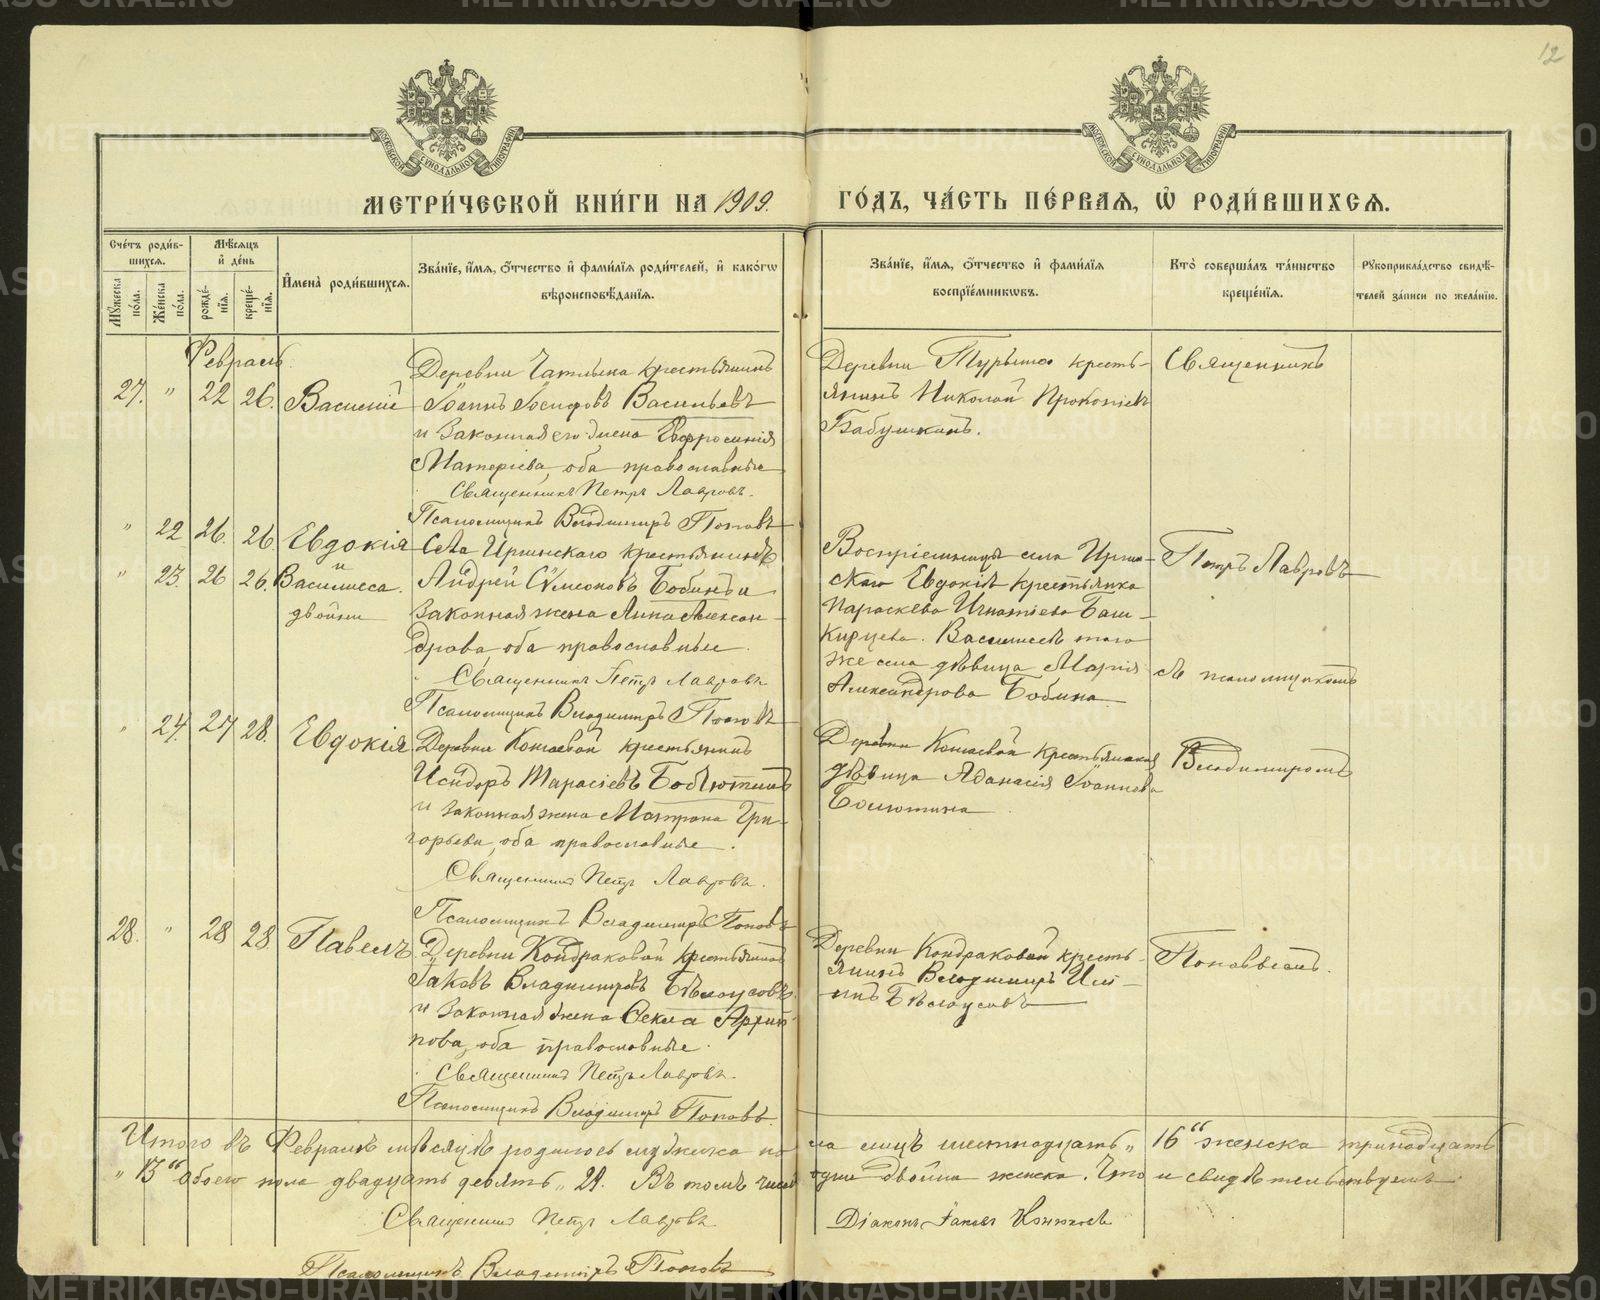 12
МОСКОВСКОЙ СѴНОДАЛЬНОЙ ТИПОГРАФІИ
МОСКОВСКОЙ СѴНОДАЛЬНОЙ ТИПОГРАФІИ
МЕТРИ́ЧЕСКОЙ КНИ́ГИ НА 1909.
ГО́ДЪ, ЧА́СТЬ ПЕ́РВАЯ, Ѿ РОДИ́ВШИХСЯ.
Сче́тъ роди́в-
шихся.
Мꙋ́жеска по́ла.
Же́нска по́ла.
Мѣ́сяцъ
и де́нь
рожде́-
нїя.
креще́-
нїя.
Имена̀ роди́вшихся.
Зва́нїе, и́мя, о́тчество и фами́лїя роди́телей, и како́гѡ
вѣроисповѣ́данїя.
Зва́нїе, и́мя, о́тчество и фами́лїя
воспрїе́мникѡвъ.
Кто̀ соверша́лъ та́инство
креще́нїя.
Рꙋкоприкла́дство свидѣ́-
телей за́писи по жела́нїю.
Февраль
27. " 22 26. Василій
Деревни Чатлыка крестьянинъ
Іоаннъ Іосифовъ Васильевъ
и законная его жена Евфросинія
оба православные
Священникъ Петръ Лавровъ.
Псаломщикъ Владимиръ Поповъ
Деревни кресть-
янинъ Николай Прокопіевъ
Бабушкинъ.
Священникъ
" 22 26. 26 Евдокія
и
" 23. 26 26. Василиса
двойни
Села Иргинскаго крестьянинъ
Андрей Сѵмеоновъ Бобинъ и
законная жена Анна Алексан-
дрова, оба православные.
Священникъ Петръ Лавровъ
Псаломщикъ Владимиръ Поповъ
Воспріемница села Ирги-
скаго Евдокіи крестьянка
Параскева Игнатіева Баш-
кирцева. Василисѣ того
же села дѣвица Марія
Александрова Бобина.
Петръ Лавровъ
съ псаломщикомъ
" 24. 27 28. Евдокія
Деревни Кошаевой крестьянинъ
Исидоръ Тарасіевъ
и законная жена Матрона Гри-
горьева, оба православные.
Священникъ Петръ Лавровъ.
Псаломщикъ Владимиръ Поповъ
Деревни Кошаевой крестьянская
дѣвица Аѳанасія Іоаннова
Владимиромъ
28. " 28 28. Павелъ
Деревни Кондраковой крестьянинъ
Іаковъ Владимировъ Бѣлоусовъ
и законная жена Ѳекла Архип-
пова, оба православные.
Священникъ Петръ Лавровъ.
Псаломщикъ Владимиръ Поповъ.
Деревни Кондраковой кресть-
янинъ Владимиръ Иль-
инъ Бѣлоусовъ
Поповымъ.
Итого въ Февралѣ мѣсяцѣ родилось мужеска по-
ла лицъ шестнадцать „ 16“ женска тринадцать
„ 13“ обоего пола двадцать девять „ 29. Въ томъ числѣ
одни двойни женска. Что и свидѣтельствуемъ
Священникъ Петръ Лавровъ
Діаконъ Іаковъ
Псаломщикъ Владимиръ Поповъ
METRIKI.GASO-URAL.RU